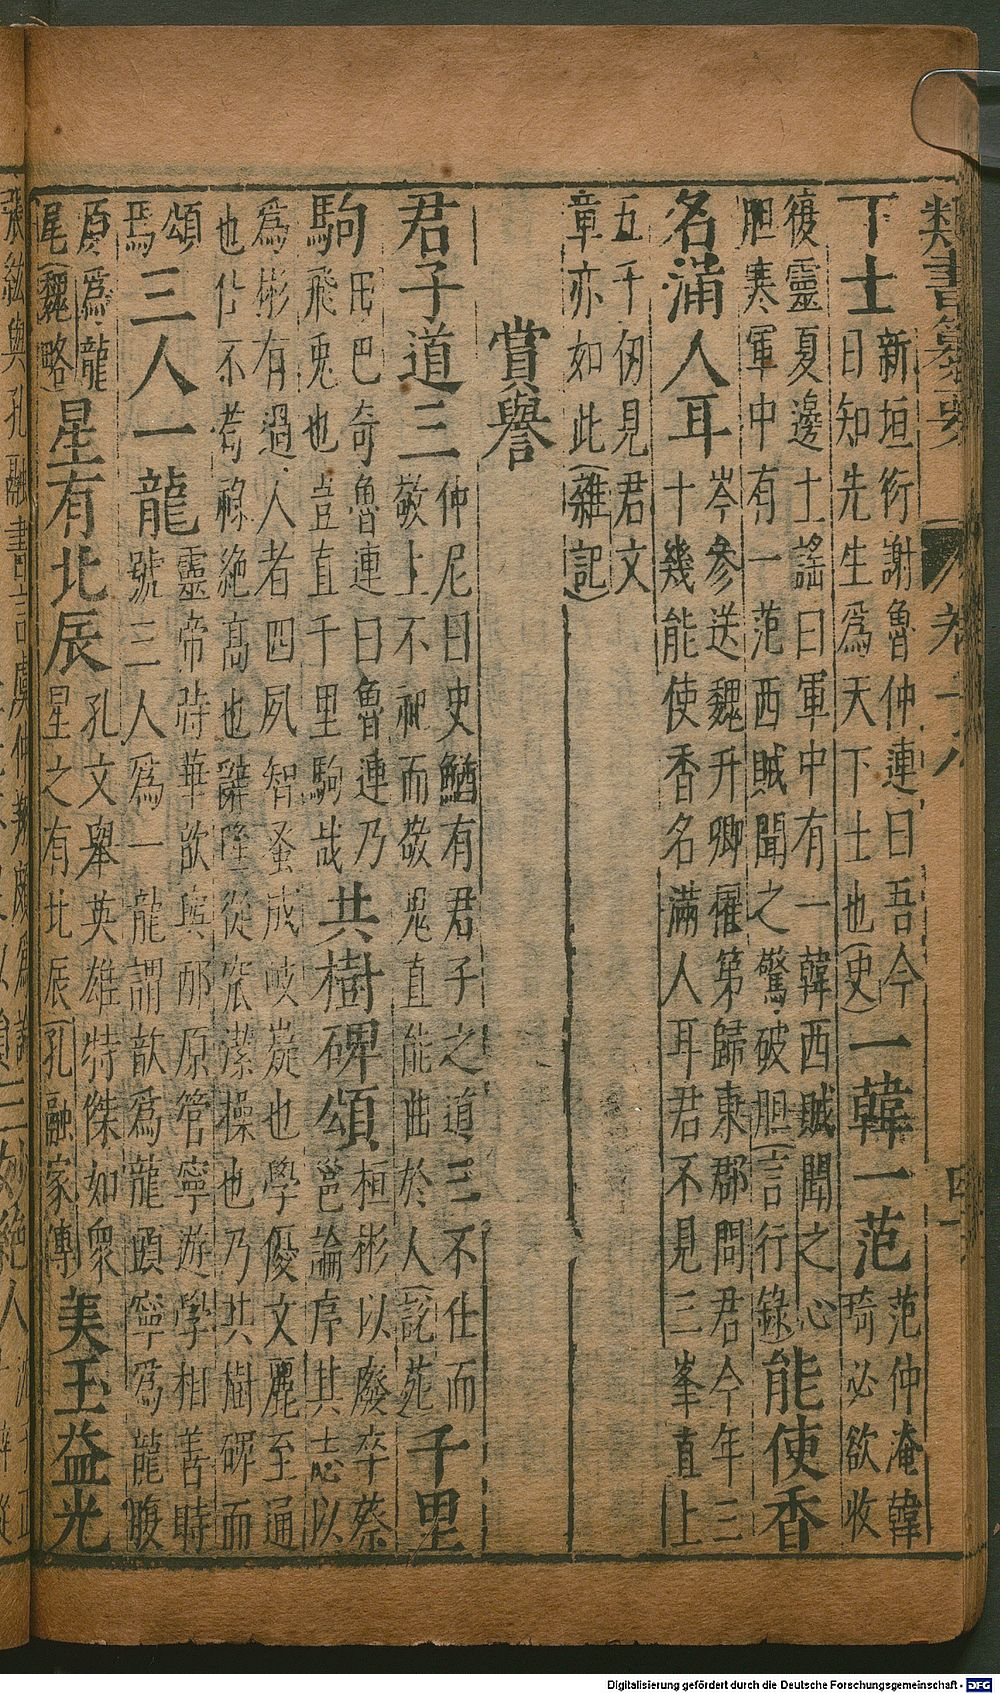 類書纂要 卷十八
下士 新垣衍謝魯仲連曰吾今
日知先生爲天下士也(史) 一韓一范 范仲淹韓
琦必欲收
復靈夏邊士謠曰軍中有一韓西賊聞之心
胆寒軍中有一范西賊聞之驚破胆(言行錄) 能使香
名滿人耳 岑參送魏升卿擢第歸東郡問君今年三
十幾能使香名滿人耳君不見三峯直上
五千仞見君文
章亦如此(雜記)
賞譽
君子道三 仲尼曰史鰌有君子之道三不仕而
敬上不祀而敬鬼直能曲於人(說苑) 千里
駒 田巴奇魯連曰魯連乃
飛兎也豈直千里駒哉 共樹碑頌 桓彬以廢卒蔡
邕論序其志以
爲彬有過人者四夙智蚤成岐嶷也學優文麗至通
也仕不苟祿絶高也辭隆從窊潔操也乃共樹碑而
頌
焉 三人一龍 靈帝時華歆與邴原管寧游學相善時
號三人爲一龍謂歆爲龍頭寧爲龍腹
原爲龍
尾(魏略) 星有北辰 孔文舉英雄特傑如衆
星之有北辰(孔融家傳) 美玉益光
張紘與孔融書曰虞仲翔
Digitalisierung gefördert durch die Deutsche Forschungsgemeinschaft - DFG